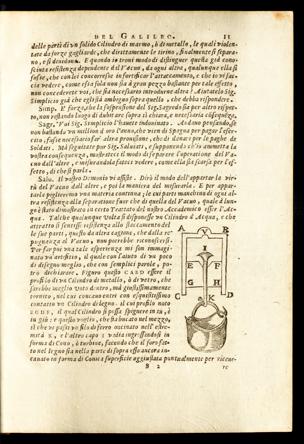 DEL GALILEO. 11
delle parti di un solido Cilindro di marmo, ò di metallo, le quali violen-
tate da forze gagliarde, che direttamente le tirino, finalmente si separa-
no, e si diuidono. E quando io troui modo di distinguer questa già cono-
sciuta resistenza dependente dal Vacuo, da ogni altra, qualunque ella si
fusse, che con lei concorresse in fortificar l'attaccamento, e che io vi fac-
cia vedere, come essa sola non sia à gran pezzo bastante per tale effetto,
non concederete voi, che sia necessario introdurne altra? Aiutatelo Sig.
Simplicio già che egli stà ambiguo sopra quello, che debba rispondere.
Simp. E' forza, che la suspensione del Sig. Sagredo sia per altro rispet-
to, non restando luogo di dubitar sopra sì chiara, e necessaria cõsequẽza.
Sagr. Voi Sig. Simplicio l'hauete indouinato. Andauo pensando, se
non bastando vn million d'oro l'anno, che vien di Spagna per pagar l'eser-
cito, fusse necessario far altra prouisione, che di danari per le paghe de'
Soldati. Mà seguitate pur Sig. Saluiati, e supponendo ch'io ammetta la
vostra consequenza, mostrateci il modo di separare l'operazione del Va-
cuo dall'altre, e misurandola fateci vedere, come ella sia scarsa per l'ef-
fetto, di che si parla.
Salu. Il vostro Demonio vi assiste. Dirò il modo dell'appartar la vir-
tù del Vacuo dall'altre, e poi la maniera del misurarla. E per appar-
tarla piglieremo vna materia continua, le cui parti manchino di ogni al-
tra resistenza alla separazione fuor che di quella del Vacuo, quale è lun-
go è stato dimostrato in certo Trattato del nostro Accademico esser l'ac-
qua. Talche qualunque volta si disponesse vn Cilindro d'Acqua, e che
attratto si sentisse resistenza allo staccamento del-
le sue parti, questo da altra cagione, che dalla re-
pugnanza al Vacuo, non potrebbe riconoscersi.
Per far poi vna tale esperienza mi son immagi-
nato vn artifizio, il quale con l'aiuto di vn poco
di disegno meglio, che con semplici parole, po-
trò dichiarare. Figuro questo CABD essere il
profilo di vn Cilindro di metallo, ò di vetro, che
sarebbe meglio voto dentro, mà giustissimamente
tornito, nel cui concauo entri con esquisitissimo
contatto vn Cilindro di legno, il cui profilo noto
EGHF, il qual Cilindro si possa spignere in sù, e
in giù: e questo voglio, che sia bucato nel mezzo,
sì che vi passi vn filo di ferro oncinato nell'estre-
mità K, e l'altro capo I vadia ingrossandosi in
forma di Cono, ò turbine, facendo che il foro fat-
to nel legno sia nella parte di sopra esso ancora in-
cauato in forma di Conica superficie aggiustata puntualmente per riceue-
B 2 re
A B
I
E F
G H
C K D